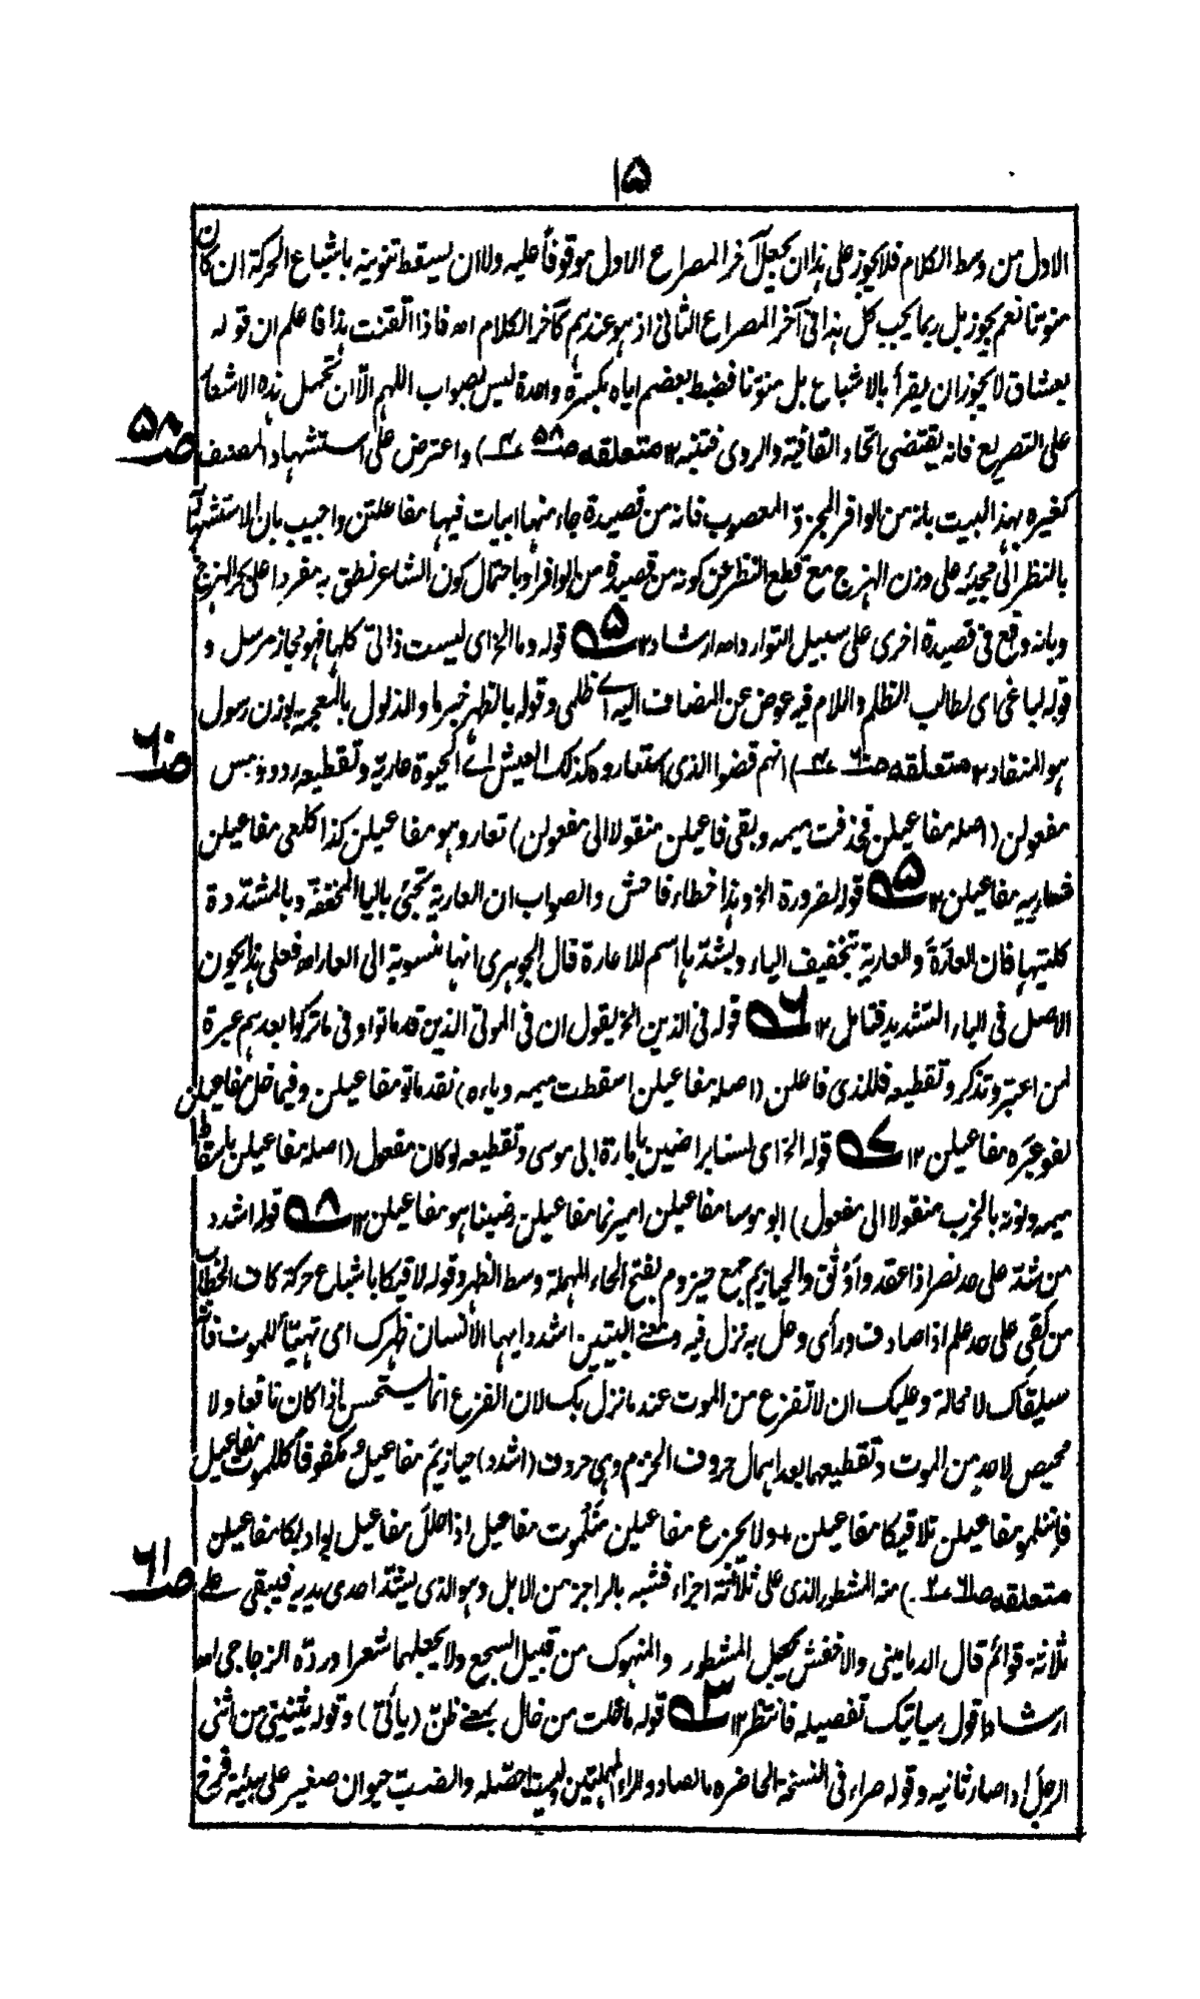 ۱۵
الاول من وسط الكلام فلا يجوز على هذا ان يجعل آخر المصراع الاول موقوفاً عليه ولا ان يسقط تنوينه باشباع الحركة ان كان
منونا نعم يجوز بل ربما يجب كل هذا فى آخر المصراع الثانى اذ هو عندهم كآخر الكلام اھ فاذا اتقنت هذا فاعلم ان قوله
بعشاق لا يجوز ان يقرأ بالاشباع بل منونا فضبط بعضهم اياه بكسرة واحدة ليس بصواب اللهم الّا ان تحمل هذه الاشعار
على التصريع فانه يقتضى اتحاد القافية والروى فتنبه ۱۲ متعلقه صـ۵۸ـ) واعترض على استشهاد المصنف
صـ۵۸
كغيره بهذا البيت بانه من الوافر المجزوّ المعصوب فانه من قصيدة جاء منها ابيات فيها مفاعلتن واجيب بان الاستشهاد
بالنظر الى مجيئه على وزن الهزج مع قطع النظر عن كونه من قصيدة من الوافر او باحتمال كون الشاعر نطق به مفردا على بحر الهزج
وبانه وقع فى قصيدة اخرى على سبيل التوارد اھ ارشاد ۱۲ ۵ قوله وما الخ اى ليست ذاتى كلها فهو مجاز مرسل و
قوله لباغى اى لطالب الظلم واللام فيه عوض عن المضاف اليه اے ظلمى وقوله بالظهر خبر ما والذلول بالمعجمه بوزن رسول
هو المنقاد ۱۲ متعلقه صـ۶۰ـ) انهم قضوا الذى استعاروه كذلك العيش اے الحيوة عارية وتقطيعه ردو ذبس
صـ۶۰
مفعولن (اصله مفاعيلن فحذفت ميمه وبقى فاعيلن منقولا الى مفعولن) تعاروهو مفاعيلن كذا كلعى مفاعيلن
شعارييه مفاعيلن ۱۲ ۵ قوله لضرورة الخ وهذا خطاء فاحش والصواب ان العارية تجئ باليا المخففة وبالمشددة
كلتيهما فان العارَة والعارية بتخفيف الياء وبشدّها اسم للاعارة قال الجوهرى انها منسوبة الى العار اھ فعلى هذا يكون
الاصل فى الياء التشديد فتامل ۱۲ ۶ قوله فى الذين الخ يقول ان فى الموتى الذين قد ماتوا وفى ما تركوا بعدهم عبرة
لمن اعتبر وتذكر وتقطيعه فللذى فاعلن (اصله مفاعيلن اسقطت ميمه وياءه) نقدماتو مفاعيلن وفيما خل مفاعيلن
لفوعبره مفاعيلن ۱۲ ۷ قوله الخ اى لسنا براضين بامارة ابى موسى وتقطيعه لوكان مفعول (اصله مفاعيلن باسقاط
ميمه ونونه بالخرب منقولا الى مفعول) ابو موسا مفاعيلن اميرنما مفاعيلن رضيناهو مفاعيلن ۱۲ ۸ قوله اشدد
من شدّ على حد نصر اذا عقد واوثق والحيازيم جمع حيزوم بفتح الحاء المهملة وسط الظهر وقوله لاقيكا باشباع حركة كاف الخطاب
من لقى على حد علم اذا صادف ورأى وحل به نزل فيه ومعنى البيتين اشدد ايها الانسان ظهرك اى تهيّأ للموت فانه
سيلقاك لا محالة وعليك ان لا تفزع من الموت عند ما نزل بك لان الفزع انما يستحسن اذا كان نافعا ولا
محيص لاحد من الموت وتقطيعهما بعد اهمال حروف الخزم وهى حروف (اشدد) حيازيم مفاعيل مكفوفاً كللموت مفاعيل
فاننلمو مفاعيلن تلاقيكا مفاعيلن + ولا تجزع مفاعيلن مثلموت مفاعيل اذا حلل مفاعيل بواديكا مفاعيلن
متعلقه صـ۶۱ـ) منه المشطور الذى على ثلاثة اجزاء فشبه بالراجز من الابل وهو الذى يشدّ احدى يديه فيبقى على
صـ۶۱
ثلاثة قوائم قال الدمامينى والاخفش يجعل المشطور والمنهوك من قبيل السجع ولا يجعلهما شعرا وردّه الزجاجى اھ
ارشاد اقول سياتيك تفصيله فانتظر ۱۲ ۳ قوله ما خلت من خال بمعنے ظنّ (يأتى) وقوله تثنيتى من اثنى
الرجل اذا صار ثانيه وقوله صراء فى النسخة الحاضره بالصاد والراء المهملتين والضب حيوان صغير على هيئة فرخ